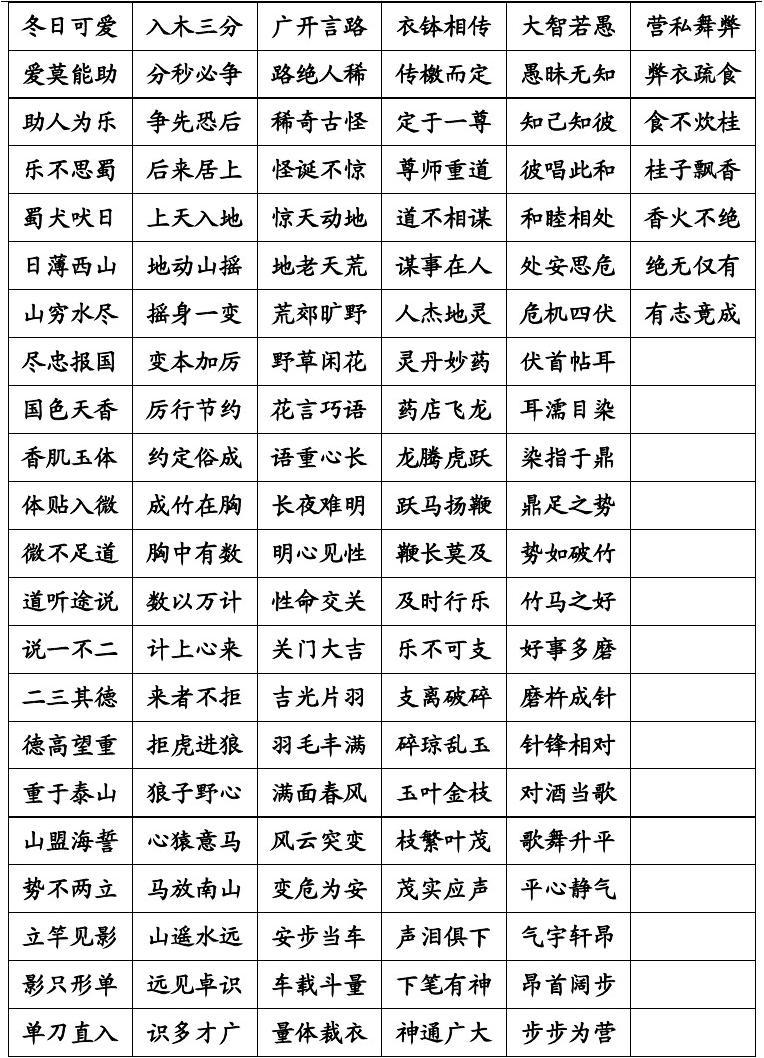 冬日可爱 入木三分 广开言路 衣钵相传 大智若愚 营私舞弊
爱莫能助 分秒必争 路绝人稀 传檄而定 愚昧无知 弊衣疏食
助人为乐 争先恐后 稀奇古怪 定于一尊 知己知彼 食不炊桂
乐不思蜀 后来居上 怪诞不惊 尊师重道 彼唱此和 桂子飘香
蜀犬吠日 上天入地 惊天动地 道不相谋 和睦相处 香火不绝
日薄西山 地动山摇 地老天荒 谋事在人 处安思危 绝无仅有
山穷水尽 摇身一变 荒郊旷野 人杰地灵 危机四伏 有志竟成
尽忠报国 变本加厉 野草闲花 灵丹妙药 伏首帖耳
国色天香 厉行节约 花言巧语 药店飞龙 耳濡目染
香肌玉体 约定俗成 语重心长 龙腾虎跃 染指于鼎
体贴入微 成竹在胸 长夜难明 跃马扬鞭 鼎足之势
微不足道 胸中有数 明心见性 鞭长莫及 势如破竹
道听途说 数以万计 性命交关 及时行乐 竹马之好
说一不二 计上心来 关门大吉 乐不可支 好事多磨
二三其德 来者不拒 吉光片羽 支离破碎 磨杵成针
德高望重 拒虎进狼 羽毛丰满 碎琼乱玉 针锋相对
重于泰山 狼子野心 满面春风 玉叶金枝 对酒当歌
山盟海誓 心猿意马 风云突变 枝繁叶茂 歌舞升平
势不两立 马放南山 变危为安 茂实应声 平心静气
立竿见影 山遥水远 安步当车 声泪俱下 气宇轩昂
影只形单 远见卓识 车载斗量 下笔有神 昂首阔步
单刀直入 识多才广 量体裁衣 神通广大 步步为营